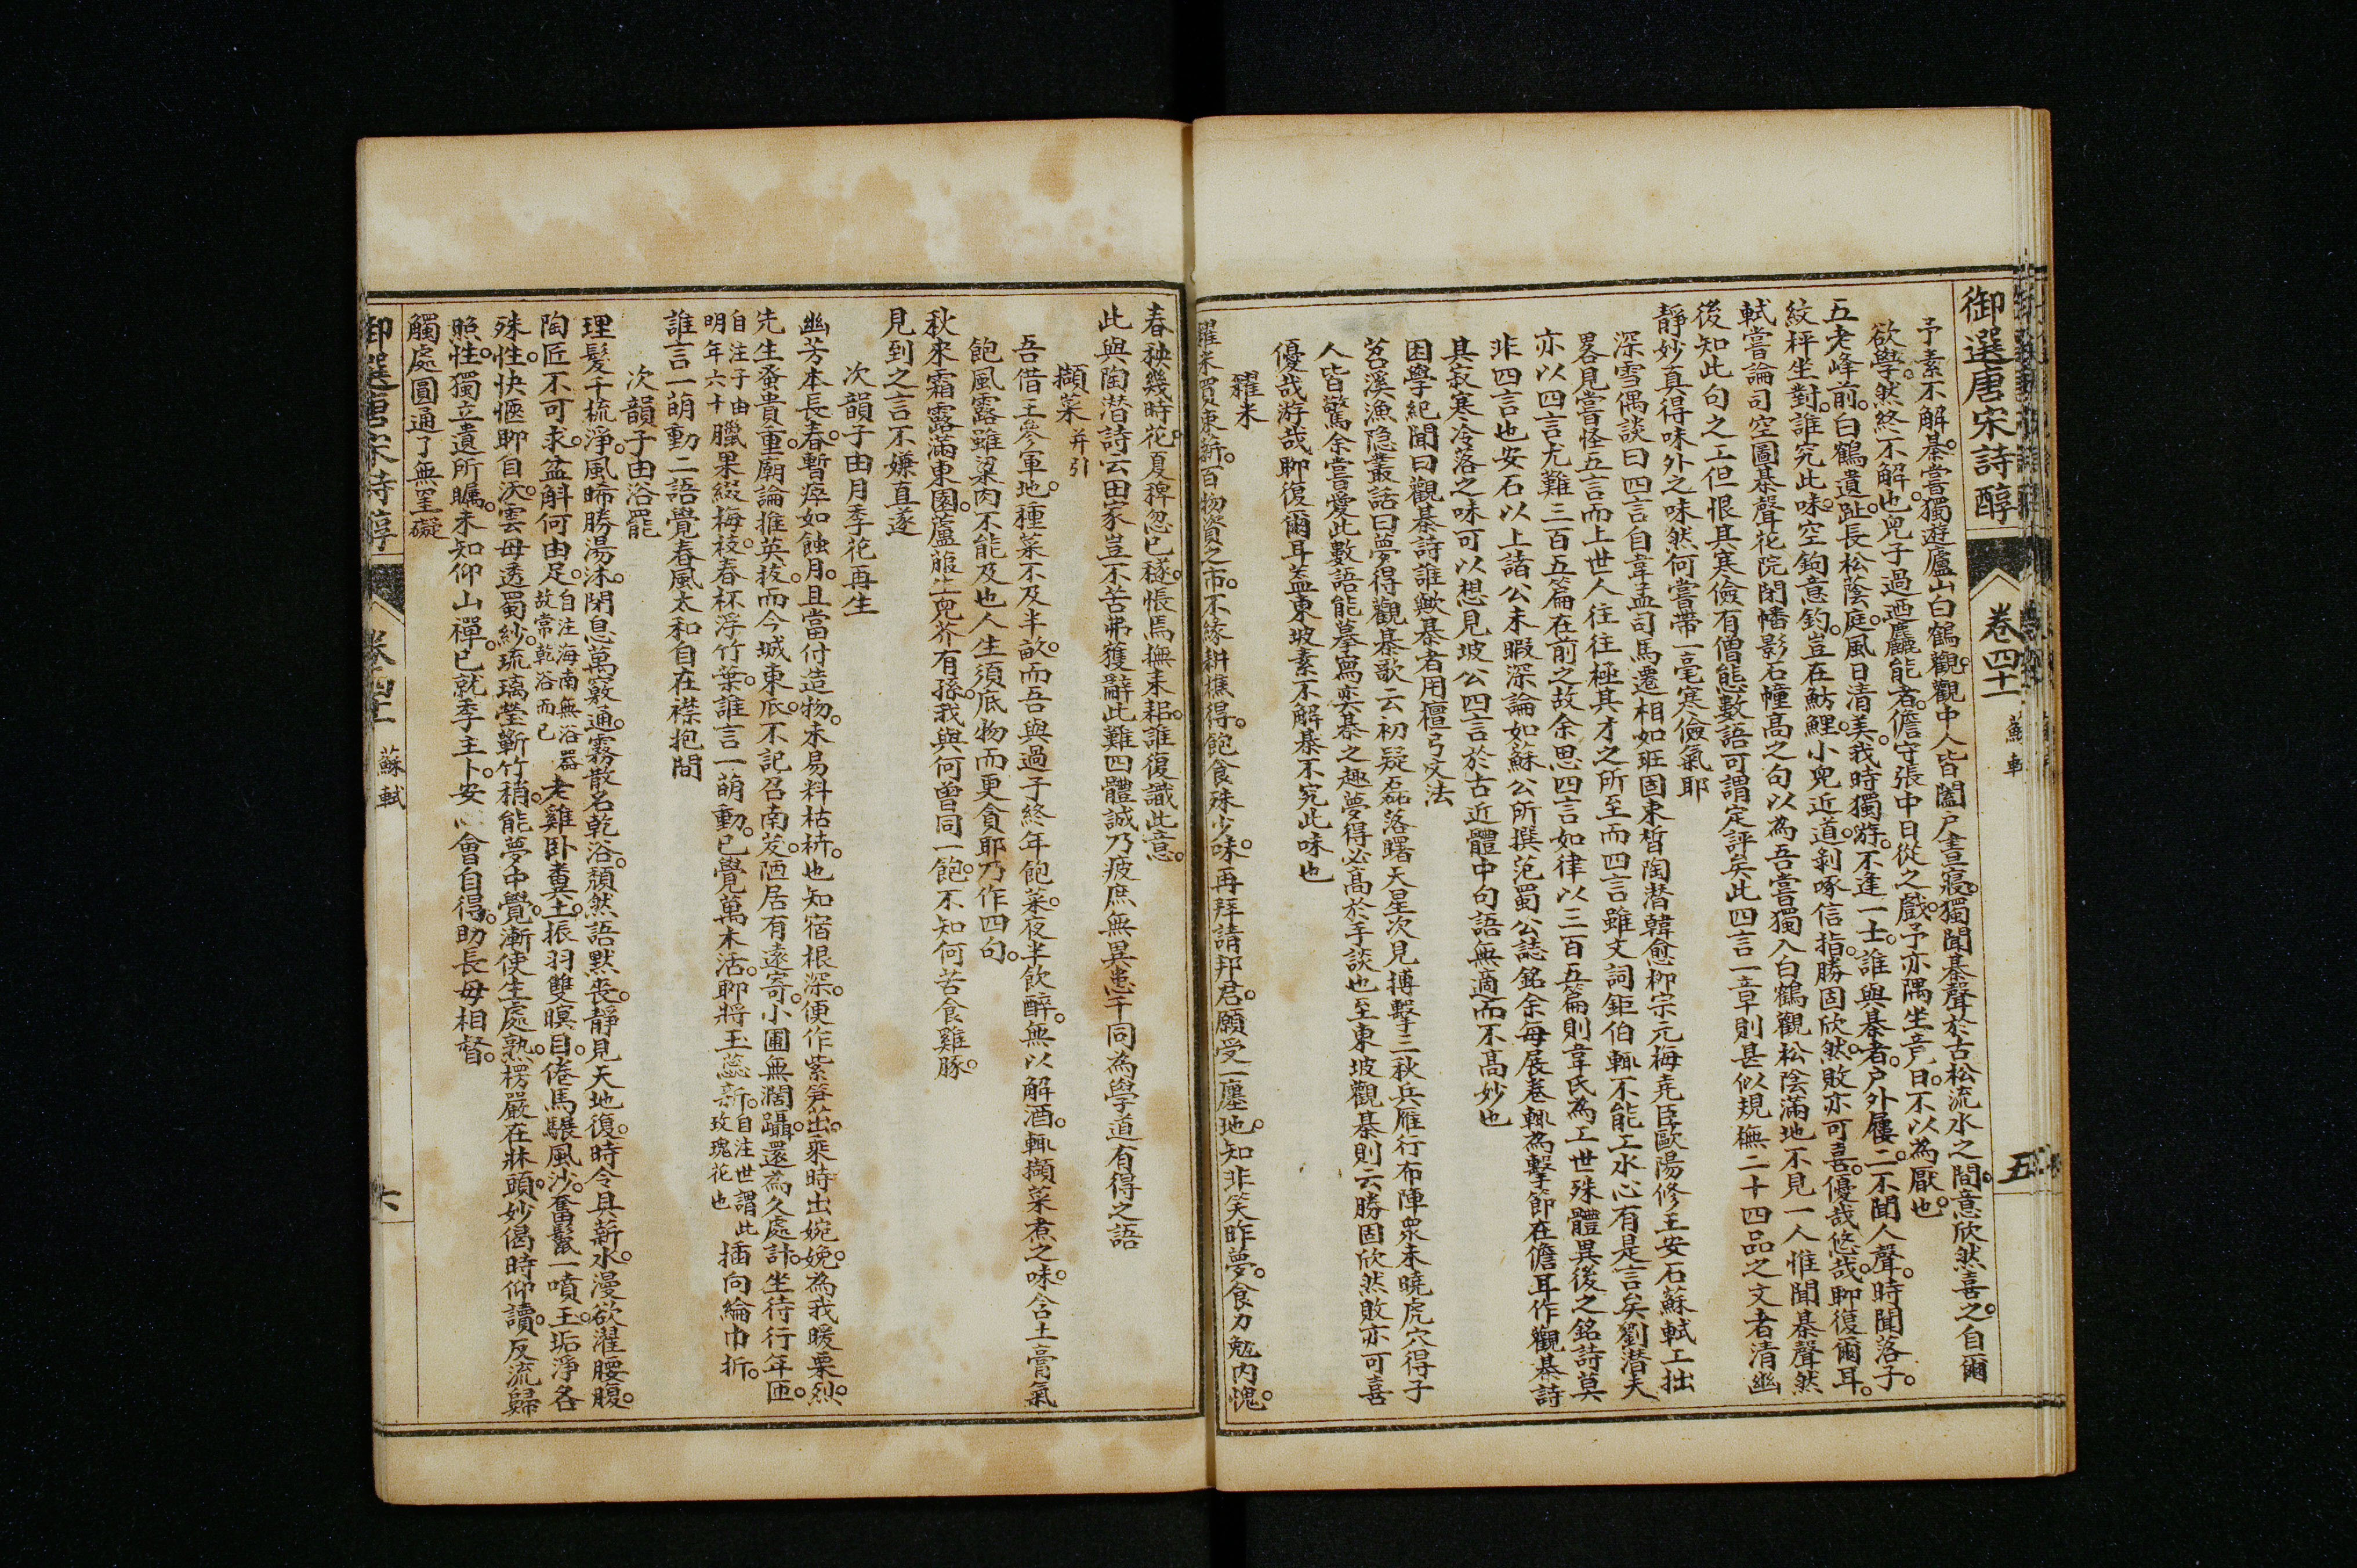 御選唐宋詩醇 卷四十一 蘇軾 五
予素不解棊嘗獨遊廬山白鶴觀觀中人皆闔戶晝寢獨聞棊聲於古松流水之間意欣然喜之自爾
欲學然終不解也兒子過迺麤能者儋守張中日從之戲予亦隅坐竟日不以為厭也
五老峰前白鶴遺趾長松蔭庭風日清美我時獨游不逢一士誰與棊者戶外屨二不聞人聲時聞落子
紋枰坐對誰究此味空鉤意釣豈在魴鯉小兒近道剝啄信指勝固欣然敗亦可喜優哉悠哉聊復爾耳
軾嘗論司空圖棊聲花院閉幡影石幢高之句以為吾嘗獨入白鶴觀松陰滿地不見一人惟聞棊聲然
後知此句之工但恨其寒儉有僧態數語可謂定評矣此四言一章則甚似規橅二十四品之文者清幽
靜妙真得味外之味然何嘗帶一毫寒儉氣耶
深雪偶談曰四言自韋孟司馬遷相如班固束皙陶潛韓愈柳宗元梅堯臣歐陽修王安石蘇軾工拙
畧見嘗怪五言而上世人往往極其才之所至而四言雖文詞鉅伯輒不能工水心有是言矣劉潛夫
亦以四言尤難三百五篇在前之故余思四言如律以三百五篇則韋氏為工世殊體異後之銘詩莫
非四言也安石以上諸公未暇深論如蘇公所撰范蜀公誌銘余每展卷輒為擊節在儋耳作觀棊詩
其寂寒冷落之味可以想見坡公四言於古近體中句語無適而不高妙也
困學紀聞曰觀棊詩誰歟棊者用檀弓文法
苕溪漁隱叢話曰夢得觀棊歌云初疑磊落曙天星次見搏擊三秋兵雁行布陣衆未曉虎穴得子
人皆驚余嘗愛此數語能摹寫奕棊之趣夢得必高於手談也至東坡觀棊則云勝固欣然敗亦可喜
優哉游哉聊復爾耳蓋東坡素不解棊不究此味也
糴米
糴米買束薪百物資之市不緣耕樵得飽食殊少味再拜請邦君願受一廛地知非笑昨夢食力勉內愧
春秧幾時花夏稗忽已穟悵焉撫耒耜誰復識此意
此與陶潛詩云田家豈不苦弗獲辭此難四體誠乃疲庶無異患干同為學道有得之語
擷菜 并引
吾借王參軍地種菜不及半畝而吾與過子終年飽菜夜半飲醉無以解酒輒擷菜煮之味含土膏氣
飽風露雖粱肉不能及也人生須底物而更貪耶乃作四句
秋來霜露滿東園蘆菔生兒芥有孫我與何曾同一飽不知何苦食雞豚
見到之言不嫌直遂
次韻子由月季花再生
幽芳本長春暫瘁如蝕月且當付造物未易料枯枿也知宿根深便作紫筍茁乘時出婉娩為我暖栗烈
先生蚤貴重廟論推英拔而今城東瓜不記召南茇陋居有遠寄小圃無闊躡還為久處計坐待行年匝
自注子由明年六十臘果綴梅枝春杯浮竹葉誰言一萌動已覺萬木活聊將玉蕊新自注世謂此玫瑰花也插向綸巾折
誰言一萌動二語覺春風太和自在襟抱間
次韻子由浴罷
理髮千梳淨風晞勝湯沐閉息萬竅通霧散名乾浴頹然語默喪靜見天地復時令具薪水漫欲濯腰腹
陶匠不可求盆斛何由足自注海南無浴器故常乾浴而已老雞臥糞土振羽雙暝目倦馬驟風沙奮鬣一噴玉垢淨各
殊性快愜聊自沃雲母透蜀紗琉璃瑩蘄竹稍能夢中覺漸使生處熟楞嚴在牀頭妙偈時仰讀反流歸
照性獨立遺所矚未知仰山禪已就季主卜安心會自得助長毋相督
觸處圓通了無罣礙
御選唐宋詩醇 卷四十一 蘇軾 六